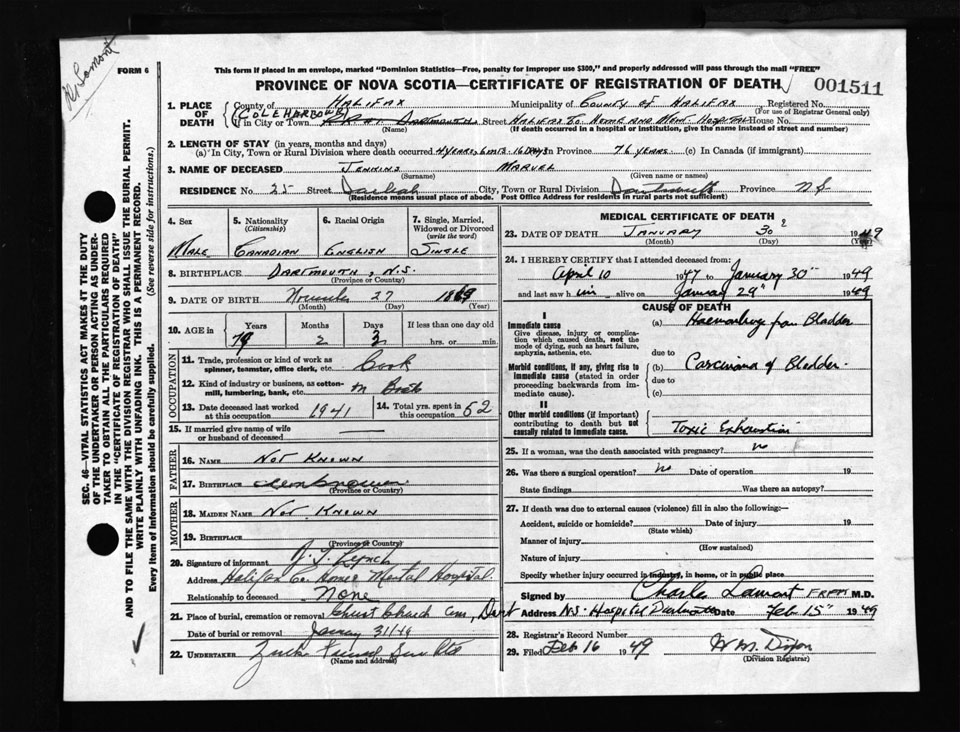 FORM 6
This form if placed in an envelope, marked "Dominion Statistics—Free, penalty for improper use $300," and properly addressed will pass through the mail "FREE"
PROVINCE OF NOVA SCOTIA—CERTIFICATE OF REGISTRATION OF DEATH
001511
SEC. 46—VITAL STATISTICS ACT MAKES IT THE DUTY
OF THE UNDERTAKER OR PERSON ACTING AS UNDER-
TAKER TO OBTAIN ALL THE PARTICULARS REQUIRED
IN THE "CERTIFICATE OF REGISTRATION OF DEATH"
AND TO FILE THE SAME WITH THE DIVISION REGISTRAR WHO SHALL ISSUE THE BURIAL PERMIT.
WRITE PLAINLY WITH UNFADING INK. THIS IS A PERMANENT RECORD.
Every item of Information should be carefully supplied. (See reverse side for instructions.)
1. PLACE OF DEATH
County of HALIFAX Municipality of COUNTY OF HALIFAX Registered No.
(For use of Registrar General only)
(COLE HARBOUR)
in City or Town DARTMOUTH Street HALIFAX Co. HOME AND MEN. HOSPITAL House No.
(Name) (If death occurred in a hospital or institution, give the name instead of street and number)
2. LENGTH OF STAY (in years, months and days)
(a) In City, Town or Rural Division where death occurred 4 YEARS, 6 MTS. 16 DAYS In Province 76 YEARS. (c) In Canada (if immigrant)
3. NAME OF DECEASED JENKINS MARVEL
(Surname) (Given name or names)
RESIDENCE No. 25 Street City, Town or Rural Division Dartmouth Province N S
(Residence means usual place of abode. Post Office Address for residents in rural parts not sufficient)
4. Sex
MALE
5. Nationality
(Citizenship)
CANADIAN
6. Racial Origin
ENGLISH
7. Single, Married,
Widowed or Divorced
(write the word)
SINGLE
8. BIRTHPLACE DARTMOUTH, N.S.
(Province or Country)
9. DATE OF BIRTH November 27 18
(Month) (Day) (Year)
10. AGE in Years Months Days If less than one day old
2 3 hrs. or min.
OCCUPATION
11. Trade, profession or kind of work as
spinner, teamster, office clerk, etc. Cook
12. Kind of industry or business, as cotton-
mill, lumbering, bank, etc. Boat
13. Date deceased last worked
at this occupation 1941
14. Total yrs. spent in
this occupation 52
15. If married give name of wife
or husband of deceased —
FATHER
16. NAME NOT KNOWN
17. BIRTHPLACE unknown
(Province or Country)
MOTHER
18. MAIDEN NAME NOT KNOWN
19. BIRTHPLACE
(Province or Country)
20. Signature of informant Lynch
Address Halifax Co. Home Mental Hospital.
Relationship to deceased None
21. Place of burial, cremation or removal Christ Church Cem, Dart
Date of burial or removal January 31/49
22. UNDERTAKER
(Name and address)
MEDICAL CERTIFICATE OF DEATH
23. DATE OF DEATH JANUARY 30 1949
(Month) (Day) (Year)
24. I HEREBY CERTIFY that I attended deceased from:
April 10 1947 to January 30" 1949
and last saw him alive on January 29" 1949
CAUSE OF DEATH
I
Immediate cause
Give disease, injury or complica-
tion which caused death, not the
mode of dying, such as heart failure,
asphyxia, asthenia, etc.
(a) Haemorrhage from Bladder
due to
Morbid conditions, if any, giving rise to
immediate cause (stated in order
proceeding backwards from im-
mediate cause).
(b) Carcinoma of Bladder.
due to
(c)
II
Other morbid conditions (if important)
contributing to death but not
causally related to immediate cause.
Toxic Exhaustion
25. If a woman, was the death associated with pregnancy? no
26. Was there a surgical operation? no Date of operation 19
State findings Was there an autopsy?
27. If death was due to external causes (violence) fill in also the following:—
Accident, suicide or homicide? Date of injury 19
(State which)
Manner of injury
(How sustained)
Nature of injury
Specify whether injury occurred in industry, in home, or in public place
Signed by Charles Lamont M.D.
Address N.S. Hospital Dartmouth Date Feb 15" 1949
28. Registrar's Record Number
29. Filed Feb 16 1949 W M. Dixon
(Division Registrar)